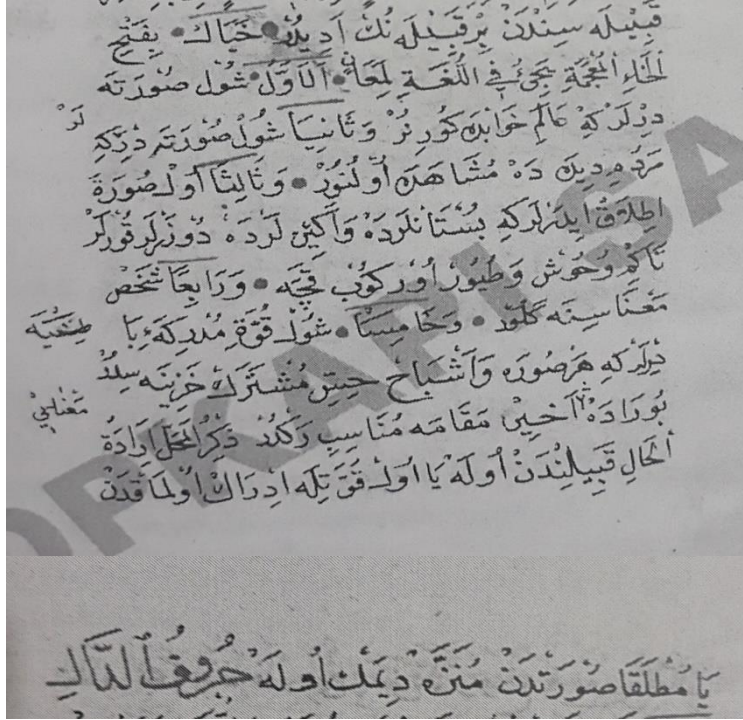 قَبِيْلَه سِنْدَنْ بِرْ قَبِيْلَه نُكْ اَدِيدُرْ • خَيَالْ • بِفَتْحِ
الْخَاءِ الْمُعْجَمَةِ يَجِئُ فِي اللُّغَةِ لِمَعَانٍ • اَلْاَوَّلُ شُولْ صُورَتَه
دِرْلَرْكِه عَالَمِ خَوَابْدَه كُورِنُرْ وَثَانِيَا شُولْ صُورَتَه دِرْكِه
لَرْ
مَرْدُمِ دِيدَه دَه مُشَاهَدَه اُولُنُورْ • وَثَالِثًا اُولْ صُورَةَ
اِطْلَاقْ اِيدَرْلَرْكِه بُسْتَانْلَرْدَه وَاَكِينْ لَرْدَه دُوزَرْلَرْ قُورَرْلَرْ
تَاكِمْ وُحُوشْ وَطُيُورْ اُورْكُوبْ قَچَه • وَرَابِعًا شَخْصْ
مَعْنَاسِنَه كَلُورْ • وَخَامِسًا • شُولْ قُوَّةِ مُدْرِكَه ءِ
دِرْلَرْكِه هَرْ صُورَه وَاَشْبَاحْ حِسِّ مُشْتَرَكْ خَزِينَه سِيدُرْ
مَعْنَايِي
بُورَادَه اَخِيرْ مَقَامَه مُنَاسِبْ دَكُلْدُرْ ذِكْرُ الْمَحَلِّ اِرَادَةُ
الْحَالِ قَبِيلِنْدَنْ اُولَه يَا اُولْ قُوَّتِلَه اِدْرَاكْ اُولْمَاقْدَنْ
يَا مُطْلَقَا صُورَتْدَنْ مُنَزَّه دِيمَكْ اُولَه حُرُوفُ الدَّالِ